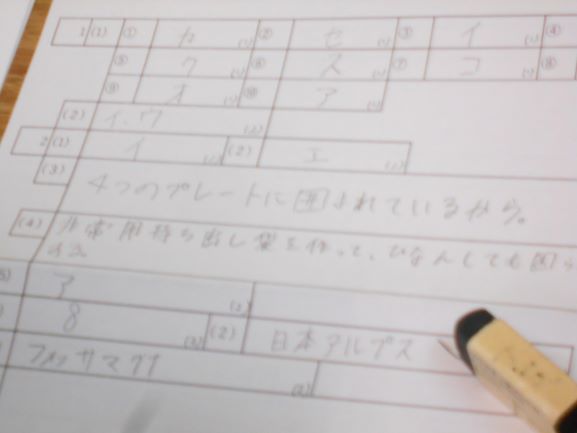 1 (1) ① カ (1) ② セ (1) ③ イ (1) ④
⑤ ク (1) ⑥ ス (1) ⑦ コ (1) ⑧
⑨ オ (1) ⑩ ア (1)
(2) イ、ウ (2)
2 (1) イ (1) (2) エ (1)
(3) 4つのプレートに囲まれているから。
(4) 非常用持ち出し袋を作って、ひなんしても困ら
ア (2)
8 (2) (2) 日本アルプス
フォッサマグナ (2)